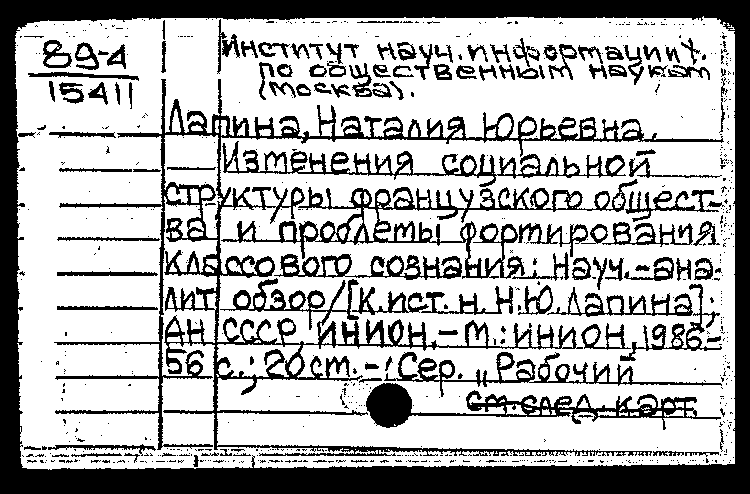 89-4
15411
Институт науч. информации
по общественным наукам
(Москва).
Лапина, Наталия Юрьевна.
Изменения социальной
структуры французского общест-
ва и проблемы формирования
классового сознания: Науч.-ана-
лит обзор/[К.ист.н. Н.Ю.Лапина];
АН СССР, ИНИОН.-М.: ИНИОН, 1986.-
56 с.; 20 см. - (Сер. „Рабочий
см. след. карт.